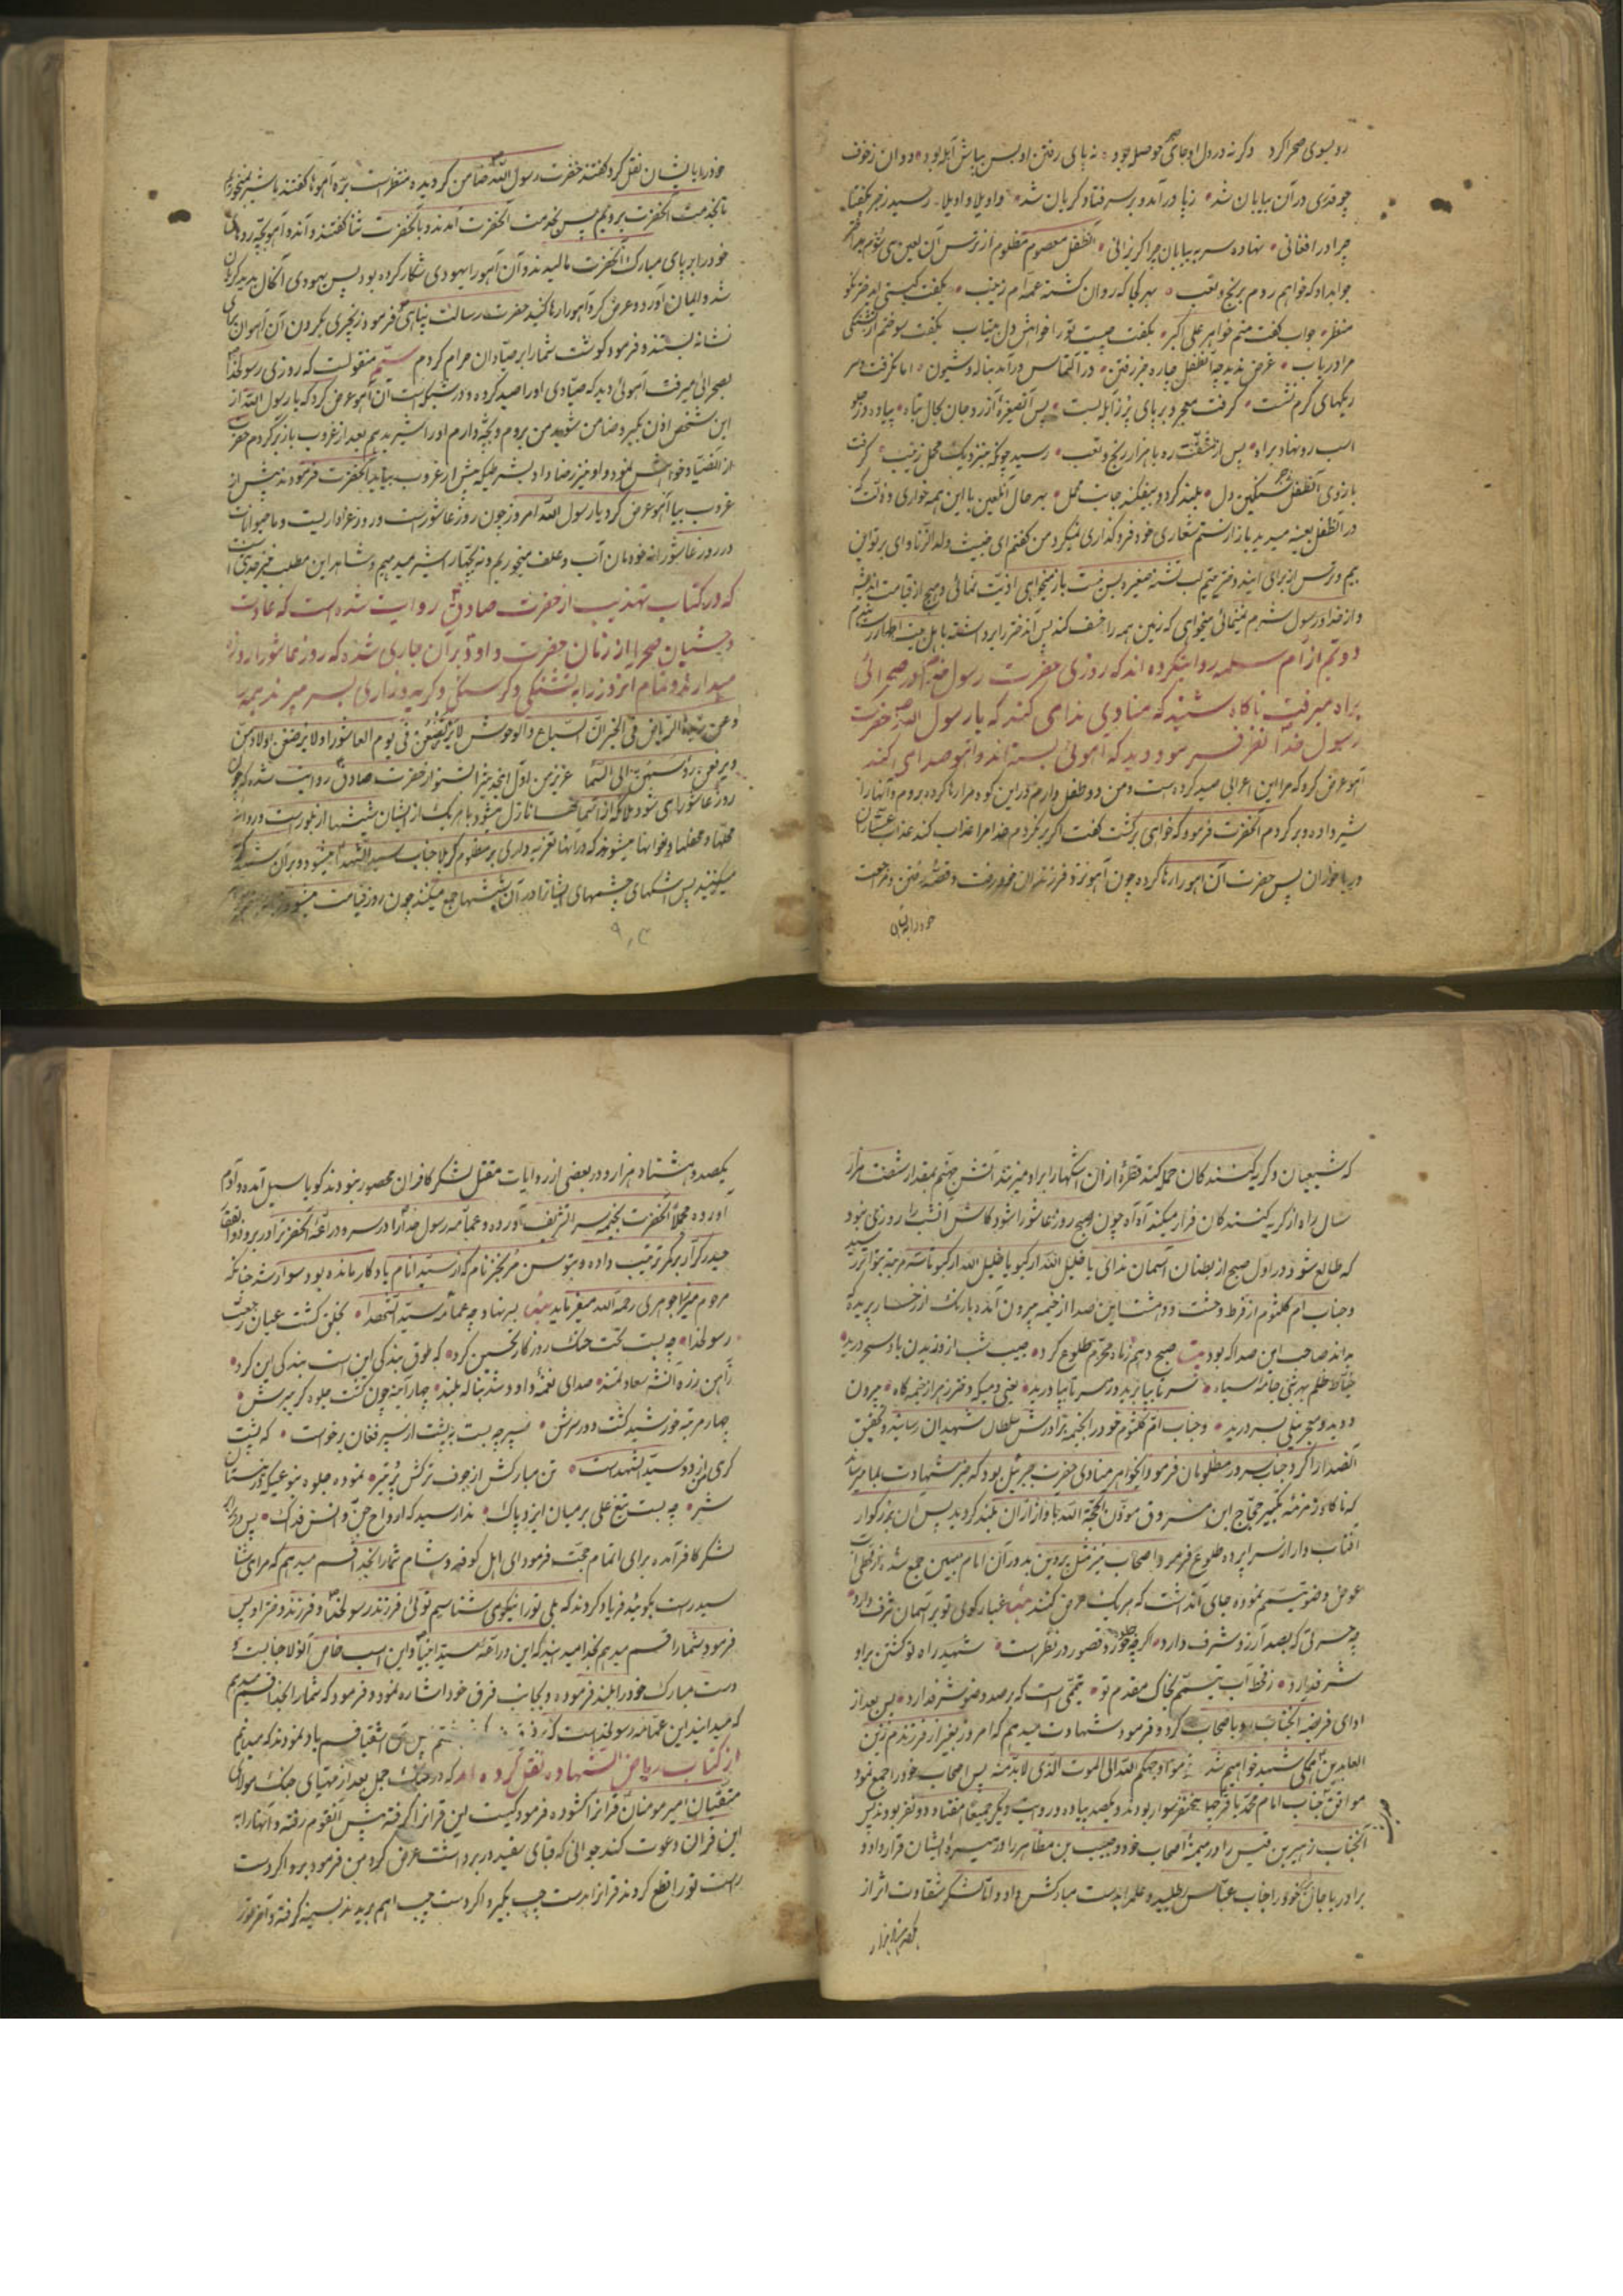 رو بسوی صحرا کرد وگرنه در دل او جای حوصله بود نه پای رفتن او بس بپاش آبله بود دوان ز خوف
چو قدری در آن بیابان شد ز پا درآمد و بر سر فتاد و گریان شد واویلا واویلا رسید زجر بگفتا
چرا در افغانی نهاده سر به بیابان چرا گریزانی آنطفل معصوم مظلوم از ترس آن لعین
جوابداد که خواهم روم برنج و تعب بهر کجا که روان گشته عمه‌ام زینب بگفت کیستی ای دختر نکو
منظر جواب گفت منم خواهر علی اکبر بگفت چیست تو را خواهش دل بیتاب بگفت سوختم از تشنگی
مرا دریاب غرض ندید چو آنطفل چاره جز رفتن در التماس درآمد بناله و شیون اما نگرفت
ریگهای گرم نشست گرفت معجر و بر پای پر ز آبله بست پس آنصغیره آزرده جان بحال تباه پیاده در جلو
اسب رو نهاد براه پس از مشقت ره با هزار رنج و تعب رسید چونکه بنزدیک محمل زینب گرفت
بازوی آنطفل سنگین دل بلند کرد و بیفکند جانب محمل بهر حال آنلعین با این همه خواری و ذلت که
در آنطفل یتیمه میدید باز از ستم شعاری خود فروگذاری نمیکرد من گفتم ای خبیث ولدالزنا وای بر تو این
بیم و ترس از برای اینه دختر یتیم لب تشنه صغیره بس نیست باز میخواهی اذیت نمائی و هیچ از قیامت اندیشه
و از خدا و رسول شرم نمینمائی میخواهی که زمین همه را خسف کند پس آندختر را برداشته باهل بیت اطهار رسانیدم
دویم از ام سلمه روایتکرده اند که روزی حضرت رسول خدا در صحرائی
براه میرفت ناگاه شنید که منادی ندا می کند که یا رسول الله حضرت
رسول خدا نظر فرمود دید که آهوئی بسته اند و آهو صدا می کند
آهو عرض کرد که مرا این اعرابی صید کرده است و من دو طفل دارم در این کوه مرا رها کرده بروم و آنها را
شیر داده و برگردم آنحضرت فرمود که خواهی برگشت گفت اگر برنگردم خدا مرا عذاب کند عذاب عشاران
و رباخواران پس حضرت آن آهو را رها کرده چون آهو نزد فرزندان خود رفت و قصه رفتن و مراجعت
خود را بایشان
خود را بایشان نقل کرد گفتند حضرت رسول الله ضامن گردیده منتظر است بره آهوها گفتند ما شیر نمیخوریم
تا بخدمت آنحضرت برویم پس بخدمت آنحضرت آمدند و بآنحضرت ثنا گفتند و آندو آهو بچه روهای
خود را بپای مبارک آنحضرت مالیدند و آن آهو را یهودی شکار کرده بود پس یهودی آنحال بدید گریان
شد و ایمان آورد و عرض کرد آهو را رها کنید حضرت رسالت پناهی فرمود زنجیری بگردن آن آهوان برای
نشانه بستند و فرمود گوشت شما را بر صیادان حرام کردم سیم منقولست که روزی رسولخدا
بصحرائی میرفت آهوئی دید که صیادی او را صید کرده و در شبکه است آن آهو عرض کرد که یا رسول الله از
این شخص اذن بگیر و ضامن شوید من بروم و بچه دارم او را شیر بدهم بعد از غروب باز برگردم حضرت
از آنصیاد خواهش نمود و او نیز رضا داد بشرطیکه پیش از غروب بیاید آنحضرت فرمودند پیش از
غروب بیا آهو عرض کرد یا رسول الله امروز چون روز عاشوراست و روز عزاداریست و ما حیوانات
در روز عاشورا نه خودمان آب و علف میخوریم و نه ببچها شیر میدهیم و شاهد این مطلب خبر صدق است
که در کتاب تهذیب از حضرت صادق روایت شده است که عادت
وحشیان صحرا از زمان حضرت داود بر آن جاری شده که روز عاشورا روزه
میدارند و تمام آنروز را به تشنگی و گرسنگی و گریه و زاری بسر میبرند
و عن ریاض فی الخبر ان السباع و الوحوش لا یرتضعن فی یوم العاشورا و لا یرضعن اولادهن
و یرفعن رؤسهن الی السما عزیز من اول اینخبر بشنو از حضرت صادق روایت شده که چون
روز عاشورا می شود ملائکه از آسمانها نازل میشود با هر یک از ایشان شیشها از بلور است و در
محلها و محفلها و خوانها میشوند که در آنها تعزیه داری بر مظلوم کربلا جناب سید الشهدا میشود و بر آن شهید گریه
میکنند پس اشکهای چشمهای ایشان را در آن شیشها جمع میکنند چون روز قیامت میشود
که شیعیان و گریه کنندگان حمله کند قطرهٔ از آن اشکها را بر او میریزند آتش جهنم بمقدار شصت هزار
سال راه از گریه کنندگان فرار میکند آه آه چون صبح روز عاشورا شود کاش آنشب را روزی نبود
که طالع شود در اول صبح از بطنان آسمان ندای یا خلیل الله ارکبوا یا خلیل الله ارکبوا تا سه مرتبه متواتر رسید
و جناب ام کلثوم از فرط وحشت و دهشت این صدا از خیمه بیرون آمده با رنگ از رخسار پریده
بداند صاحب این صدا که بود بیت صبح دهم ز ماه محرم طلوع کرد جیب شب از وزیدن باد سحر درید
خیاط ظلم بهر نبی جامهٔ سیاه سر تا بپا برید و ز سر تا بپا درید یعنی دمیکه دختر زهرا ز خیمه گاه بیرون
دوید و معجر نیلی بسر درید و جناب ام کلثوم خود را بخیمه برادرش سلطان شهیدان رسانید و تحقیق
آنصدا را کرد جناب سرور مظلومان فرمود ایخواهر منادی حضرت جبرئیل بود که خبر شهادت بما میرساند
که ناگاه زمزمه تکبیر حجاج ابن مسروق موذن الحجة الله با آواز اذان بلند گردید پس آن بزرگوار
آفتاب وار از سراپرده طلوع فرمود و اصحاب نیز مثل پروین بدور آن امام مبین جمع شد از قحطی آب
عوض وضو تیمم نموده جای آنداشت که هر یک عرض کنند بیت غبار کوی تو بر آسمان شرف دارد
چه حسرتی که بصد آرزو شرف دارد اگرچه جلوه حور و قصور در نظر است شهید راه تو گشتن براو
شرف دارد ز قحط آب تیمم بخاک مقدم تو تیممی است که بر صد وضو شرف دارد پس بعد از
ادای فریضه آنجناب رو باصحاب کرد و فرمود شهادت میدهم که امروز بغیر از فرزندم زین
العابدین همگی شهید خواهیم شد موافق جناب امام محمد باقر
آنجناب زهیر بن قیس را در میمنه اصحاب خود و حبیب بن مظاهر را در میسره ایشان قرار داد و
برادر باجان خود را جناب عباس طلبیده علم را بدست مبارکش داد و اما لشگر شقاوت اثر از
یکصد و هشتاد هزار و در بعضی از روایات مقتل لشگر کافران محصور نبودند گویا سیل آمده و آدم
آورده مجملا آنحضرت بخیمه سر الشریف آورده و عمامه رسول خدا را در سر و دراعهٔ آنحضرت را در بر و ذوالفقار
حیدر کرار بر کمر ترتیب داده و بتوسن مرتجز نام که از سید انام یادگار مانده بود سوار شد چنانکه
مرحوم میرزا جوهری رحمه الله میفرماید بیت بسر نهاد چو عمامهٔ سید الشهدا بخلق گشت عیان رجعت
رسولخدا چه بست تحت حنک روزگار تحسین کرد که طوق بندگی این است بندگی این کرد
ز آهن زره آنشه سعادتمند صدای نغمهٔ داود شد بناله بلند چهار آینه چون گشت جلوه گر ببرش
چهار مرتبه خورشید گشت دور سرش سپر چه بست بپشت از سپر فغان برخواست که پشت
گرمی من از دو سید الشهداست تن مبارکش از خوف ترکش پر تیر نموده جلوه بنوعیکه در نیستان
شیر چه بست تیغ علی بر میان ایزد پاک ندا رسید که ارواح جن و انس فداک پس در برابر
لشگر کافر آمده برای اتمام حجت فرمود ای اهل کوفه و شام شما را بخدا قسم میدهم که مرا می شناسید
سید راست بگوئید فریاد کردند که بلی تو را نیکو می شناسیم توئی فرزند رسولخدا و فرزند دختر او پس
فرمود شما را قسم میدهم بخدا میدانید که این دراعهٔ سید انبیا و این اسب خاص آنولا جنابست
دست مبارک خود را بلند فرموده و بجانب فرق خود اشاره نمود و فرمود که شما را بخدا قسم میدهم
که میدانید این عمامه رسولخداست که پس آن اشقیا قسم یاد نمودند که میدانیم
از کتاب ریاض الشهاده نقل کرده اند که در جنگ جمل بعد از مهیای جنگ مولای
متقیان امیر مومنان قرآنرا گشوده فرمود کیست این قرآنرا گرفته پیش آنقوم رفته و آنها را به
این قرآن دعوت کند جوانی که قبای سفید در بر داشت عرض کرد من فرمود برو اگر دست
راست تو را قطع کردند قرآنرا بدست چپ بگیر و اگر دست چپ را هم بریدند بسینه گرفته و آخر تو را